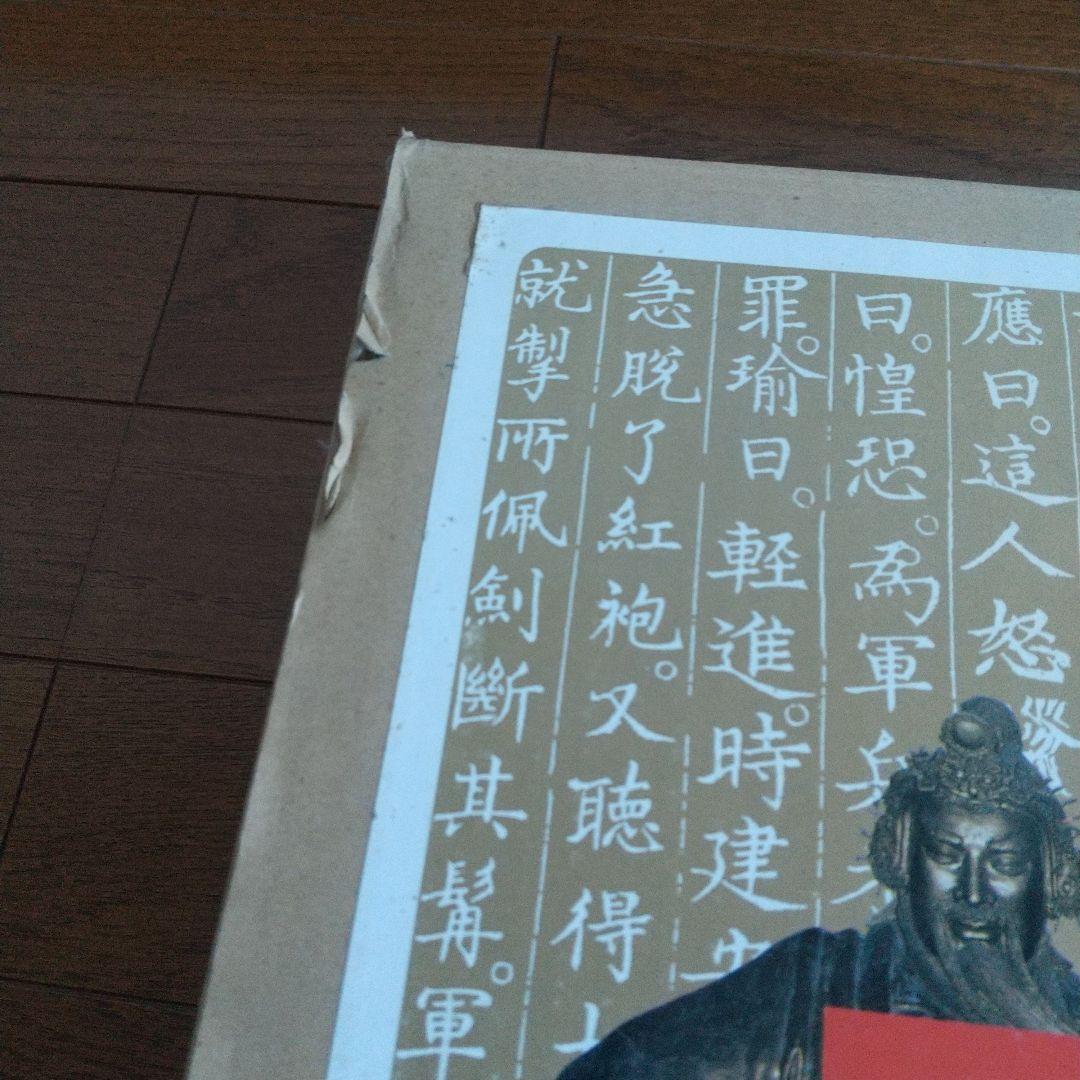 應曰。這人怒
曰。惶恐。為軍兵
罪。瑜曰。輕進。時建安
急脫了紅袍。又聽得上
就掣所佩劍斷其髯。軍